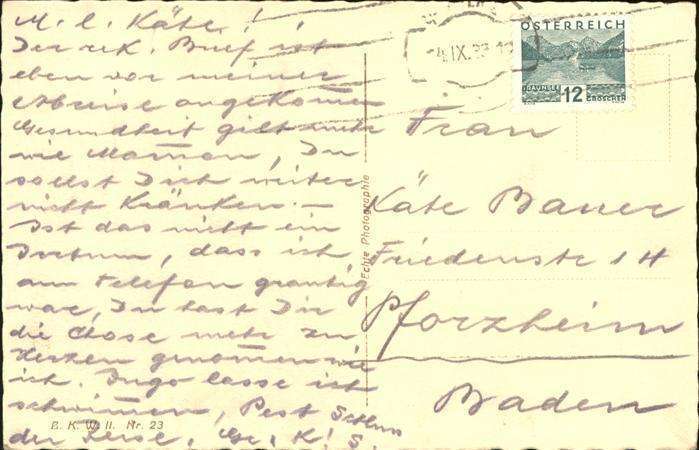 M. l. Käte!
Der rek. Brief ist
eben vor meiner
Abreise angekommen
Gesundheit gilt mehr
wie Mamon, Du
sollst Dich weiter
nicht Kränken. –
Ist das nicht ein
Irrtum, dass ich
am Telefon grantig
war, Du hast Dir
die Chose mehr zu
Herzen genommen wie
ich. Ingo lasse ich
schwimmen, Rest
der Reise,
B. K. W. II. Nr. 23
Echte Photographie
IX.
ÖSTERREICH
TRAUNSEE
12
GROSCHEN
Frau
Käte Bauer
Friedenstr 14
Pforzheim
Baden